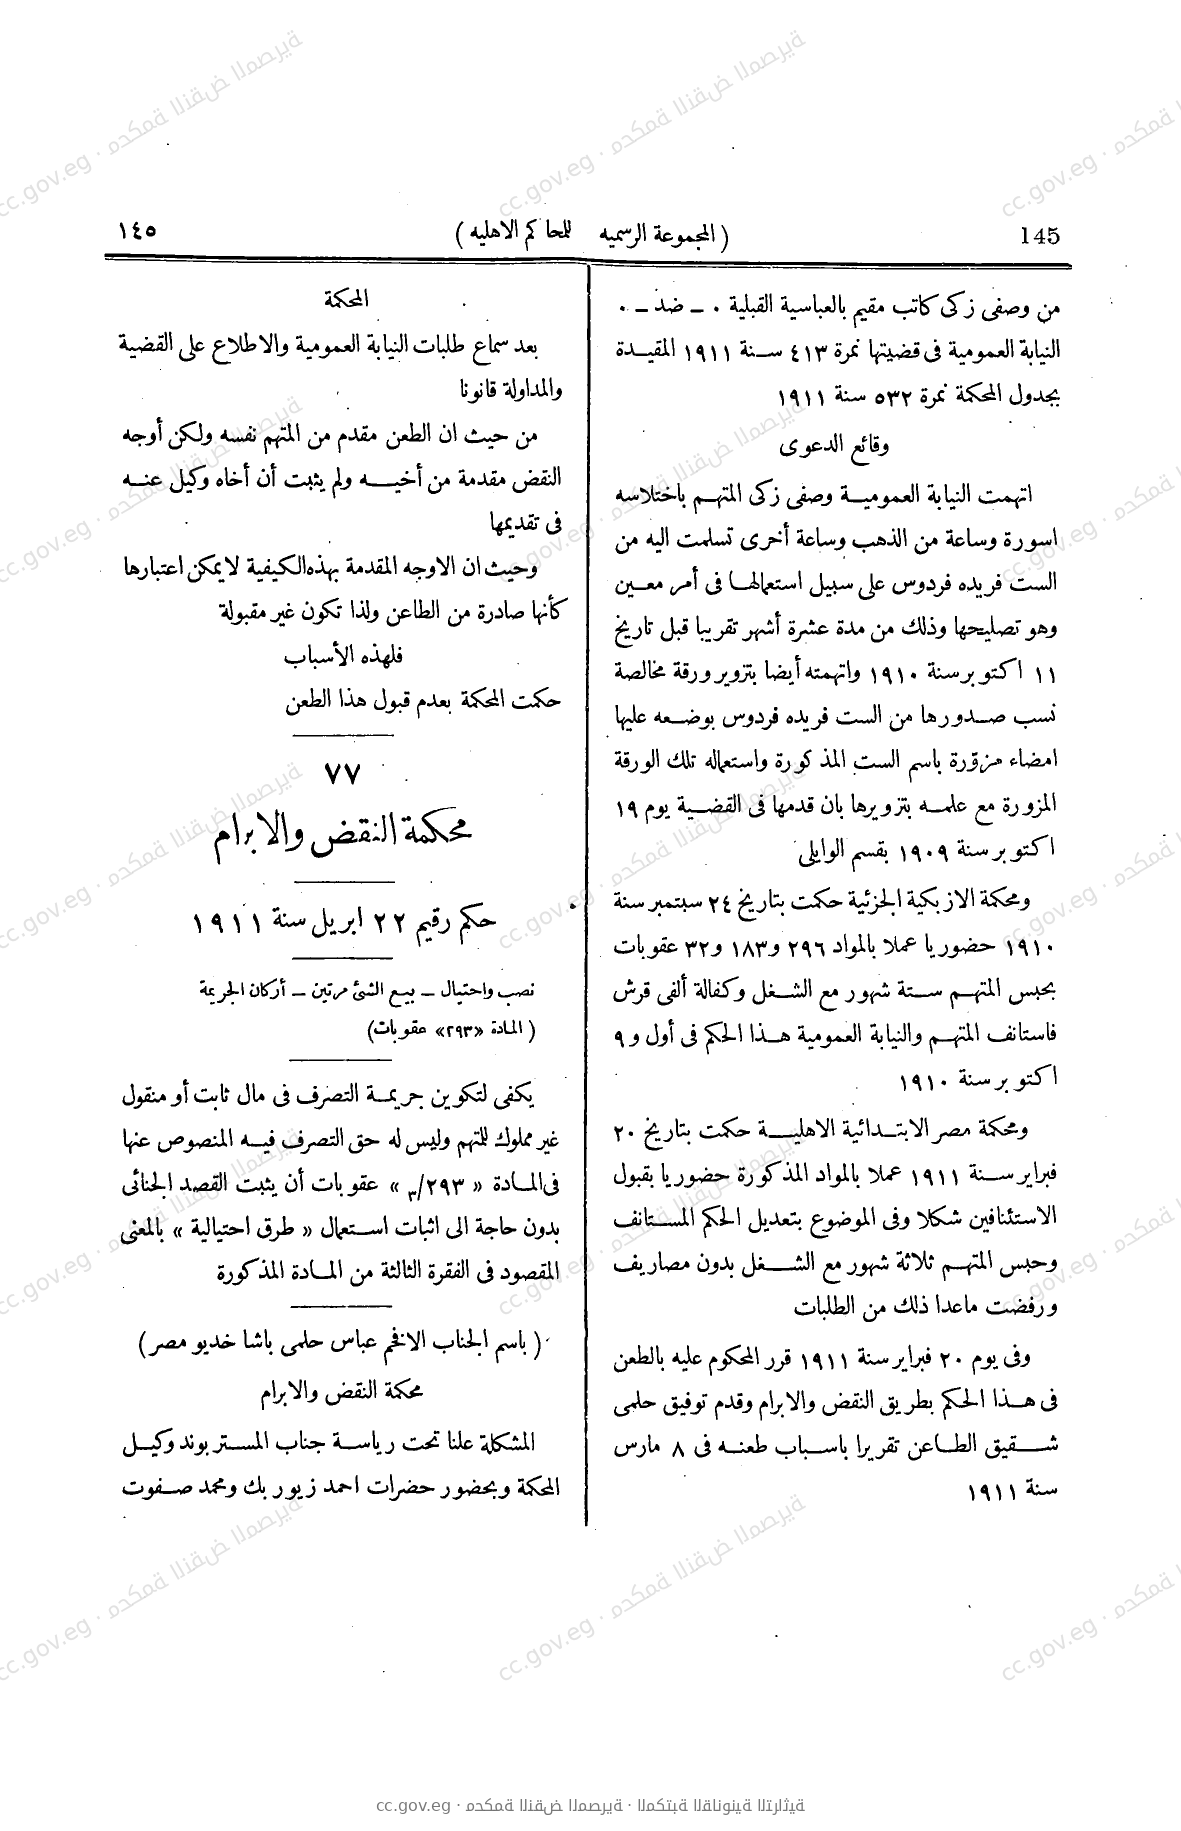 145
( المجموعة الرسميه للمحاكم الاهليه )
١٤٥
من وصفى زكى كاتب مقيم بالعباسية القبلية ٠ ــ ضد ــ ٠
النيابة العمومية فى قضيتها نمرة ٤١٣ سنة ١٩١١ المقيدة
بجدول المحكمة نمرة ٥٣٢ سنة ١٩١١
وقائع الدعوى
اتهمت النيابة العمومية وصفى زكى المتهم باختلاسه
اسورة وساعة من الذهب وساعة أخرى تسلمت اليه من
الست فريده فردوس على سبيل استعمالها فى أمر معين
وهو تصليحها وذلك من مدة عشرة أشهر تقريبا قبل تاريخ
١١ اكتوبر سنة ١٩١٠ واتهمته أيضا بتزوير ورقة مخالصة
نسب صدورها من الست فريده فردوس بوضعه عليها
امضاء مزوّرة باسم الست المذكورة واستعماله تلك الورقة
المزورة مع علمه بتزويرها بان قدمها فى القضية يوم ١٩
اكتوبر سنة ١٩٠٩ بقسم الوايلى
ومحكمة الازبكية الجزئية حكمت بتاريخ ٢٤ سبتمبر سنة
١٩١٠ حضوريا عملا بالمواد ٢٩٦ و١٨٣ و٣٢ عقوبات
بحبس المتهم ستة شهور مع الشغل وكفالة ألفى قرش
فاستانف المتهم والنيابة العمومية هذا الحكم فى أول و ٩
اكتوبر سنة ١٩١٠
ومحكمة مصر الابتدائية الاهلية حكمت بتاريخ ٢٠
فبراير سنة ١٩١١ عملا بالمواد المذكورة حضوريا بقبول
الاستئنافين شكلا وفى الموضوع بتعديل الحكم المستانف
وحبس المتهم ثلاثة شهور مع الشغل بدون مصاريف
ورفضت ماعدا ذلك من الطلبات
وفى يوم ٢٠ فبراير سنة ١٩١١ قرر المحكوم عليه بالطعن
فى هذا الحكم بطريق النقض والابرام وقدم توفيق حلمى
شقيق الطاعن تقريرا باسباب طعنه فى ٨ مارس
سنة ١٩١١
المحكمة
بعد سماع طلبات النيابة العمومية والاطلاع على القضية
والمداولة قانونا
من حيث ان الطعن مقدم من المتهم نفسه ولكن أوجه
النقض مقدمة من أخيه ولم يثبت أن أخاه وكيل عنه
فى تقديمها
وحيث ان الاوجه المقدمة بهذه الكيفية لا يمكن اعتبارها
كأنها صادرة من الطاعن ولذا تكون غير مقبولة
فلهذه الأسباب
حكمت المحكمة بعدم قبول هذا الطعن
٧٧
محكمة النقض والابرام
حكم رقيم ٢٢ ابريل سنة ١٩١١
نصب واحتيال ــ بيع الشئ مرتين ــ أركان الجريمة
( المادة «٢٩٣» عقوبات)
يكفى لتكوين جريمة التصرف فى مال ثابت أو منقول
غير مملوك للمتهم وليس له حق التصرف فيه المنصوص عنها
فى المادة « ٢٩٣/٣ » عقوبات أن يثبت القصد الجنائى
بدون حاجة الى اثبات استعمال « طرق احتيالية » بالمعنى
المقصود فى الفقرة الثالثة من المادة المذكورة
( باسم الجناب الافخم عباس حلمى باشا خديو مصر )
محكمة النقض والابرام
المشكلة علنا تحت رياسة جناب المستر بوند وكيل
المحكمة وبحضور حضرات احمد زيور بك ومحمد صفوت
cc.gov.eg · محكمة النقض المصرية · المكتبة القانونية التراثية